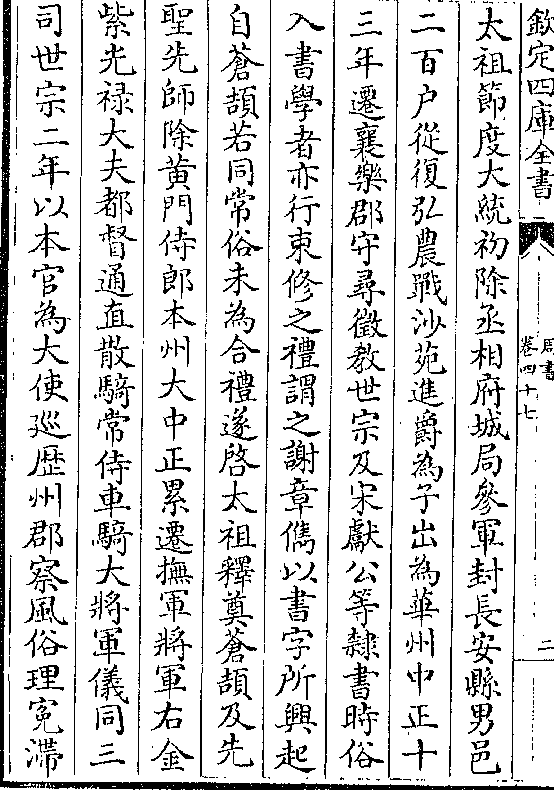 欽定四庫全書
周書
卷四十七
二
太祖節度大統初除丞相府城局參軍封長安縣男邑
二百户從復弘農戰沙苑進爵為子出為華州中正十
三年遷襄樂郡守尋徵教世宗及宋獻公等隸書時俗
入書學者亦行束修之禮謂之謝章儁以書字所興起
自蒼頡若同常俗未為合禮遂啓太祖釋奠蒼頡及先
聖先師除黄門侍郎本州大中正累遷撫軍將軍右金
紫光禄大夫都督通直散騎常侍車騎大將軍儀同三
司世宗二年以本官為大使廵歴州郡察風俗理冤滯